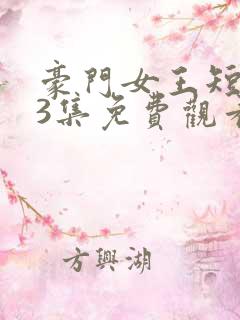 豪門女王短
3集免費觀看
方興湖